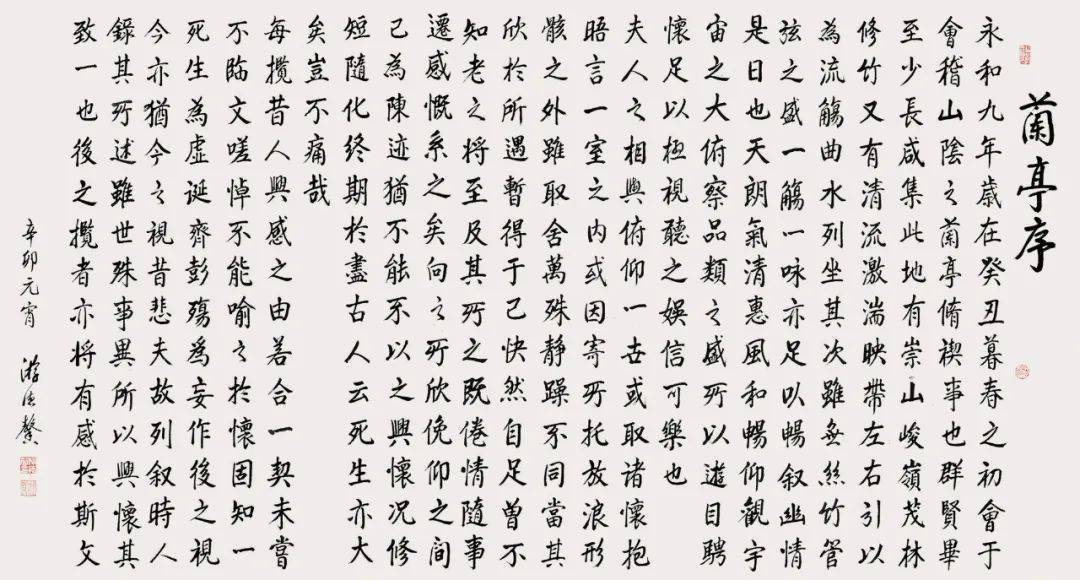 蘭亭序
永和九年歲在癸丑暮春之初會于
會稽山陰之蘭亭脩禊事也群賢畢
至少長咸集此地有崇山峻嶺茂林
修竹又有清流激湍映帶左右引以
為流觴曲水列坐其次雖無絲竹管
弦之盛一觴一咏亦足以暢叙幽情
是日也天朗氣清惠風和暢仰觀宇
宙之大俯察品類之盛所以遊目騁
懷足以極視聽之娛信可樂也
夫人之相與俯仰一世或取諸懷抱
晤言一室之内或因寄所托放浪形
骸之外雖取舍萬殊静躁不同當其
欣於所遇暫得于己快然自足曾不
知老之将至及其所之既倦情隨事
遷感慨系之矣向之所欣俛仰之間
已為陳迹猶不能不以之興懷况修
短隨化终期於盡古人云死生亦大
矣豈不痛哉
每攬昔人興感之由若合一契未嘗
不臨文嗟悼不能喻之於懷固知一
死生為虛诞齊彭殤為妄作後之視
今亦猶今之視昔悲夫故列叙時人
錄其所述雖世殊事異所以興懷其
致一也後之攬者亦将有感於斯文
辛卯元宵